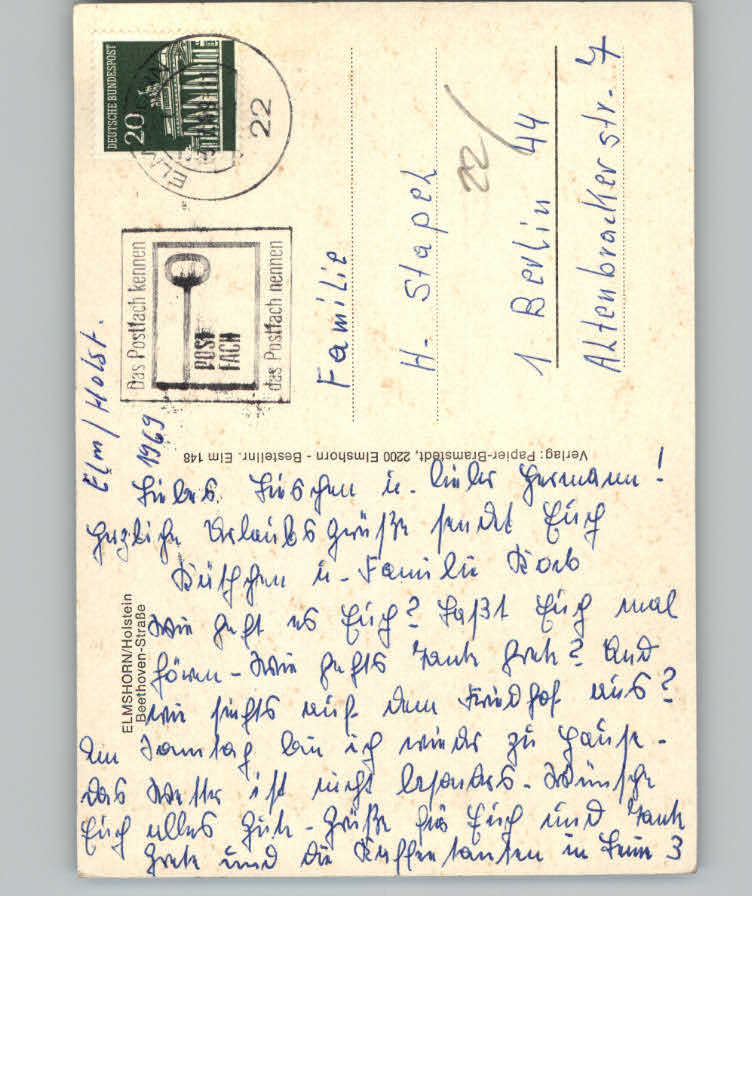 Elm/Holst.
1969
Liebes Lieschen u. lieber Hermann!
Herzliche Urlaubsgrüße sendet Euch
Käthchen u. Familie
Wie geht es Euch? Laßt Euch mal
hören - Wie gehts Tante Grete? Und
wie siehts auf dem Friedhof aus?
Am Samstag bin ich wieder zu Hause -
das Wetter ist nicht besonders - Wünsche
Euch alles Gute - Grüße für Euch und Tante
Grete und die Kaffeetanten in 3
ELMSHORN/Holstein
Beethoven-Straße
Verlag: Papier-Bramstedt, 2200 Elmshorn - Bestellnr. Elm 148
DEUTSCHE BUNDESPOST
20
22
Das Postfach kennen
POST
FACH
das Postfach nennen
Familie
H. Stapel
22/
1 Berlin 44
Altenbraker str. 7